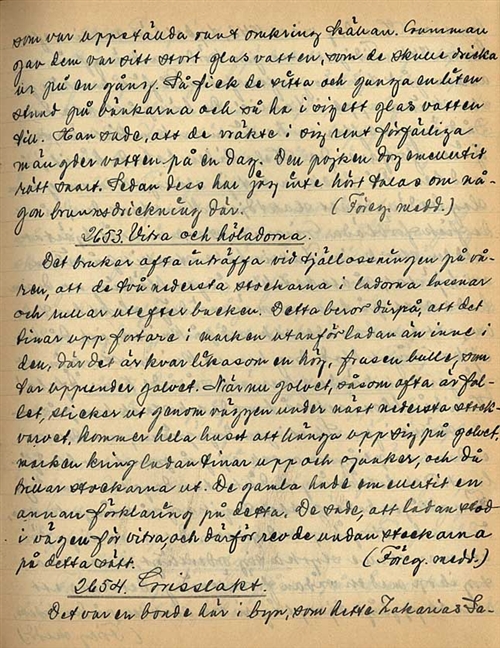 som var uppställda runt omkring källan. Gumman
gav dem var sitt stort glas vatten, som de skulle dricka
ur på en gång. Så fick de sitta och gunga en liten
stund på bänkarna och så ha i sig ett glas vatten
till. Han sade, att de vräkte i sig rent förfärliga
mängder vatten på en dag. Den pojken dog emellertid
rätt snart. Sedan dess har jag inte hört talas om nå-
gon brunnsdrickning där. (Föreg. medd.)
2653. Vitra och höladorna.
Det brukar ofta inträffa vid tjällossningen på vå-
ren, att de två nedersta stockarna i ladorna lossnar
och rullar utefter backen. Detta beror därpå, att det
tinar upp fortare i marken utanför ladan än inne i
den, där det är kvar liksom en hög, frusen bulle, som
tar upp under golvet. När nu golvet, såsom ofta är fal-
let, sticker ut genom väggen under näst nedersta stock-
varvet, kommer hela huset att hänga upp sig på golvet,
marken kring ladan tinar upp och sjunker, och då
trillar stockarna ut. De gamla hade emellertid en
annan förklaring på detta. De sade, att ladan stod
i vägen för vitra, och därför rev de undan stockarna
på detta sätt. (Föreg. medd.)
2654. Grisslakt.
Det var en bonde här i byn, som hette Zakarias Sa-